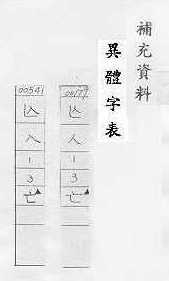 補充資料
異體字表
亾
人
1
3
亡
00541
兦
入
1
3
亡